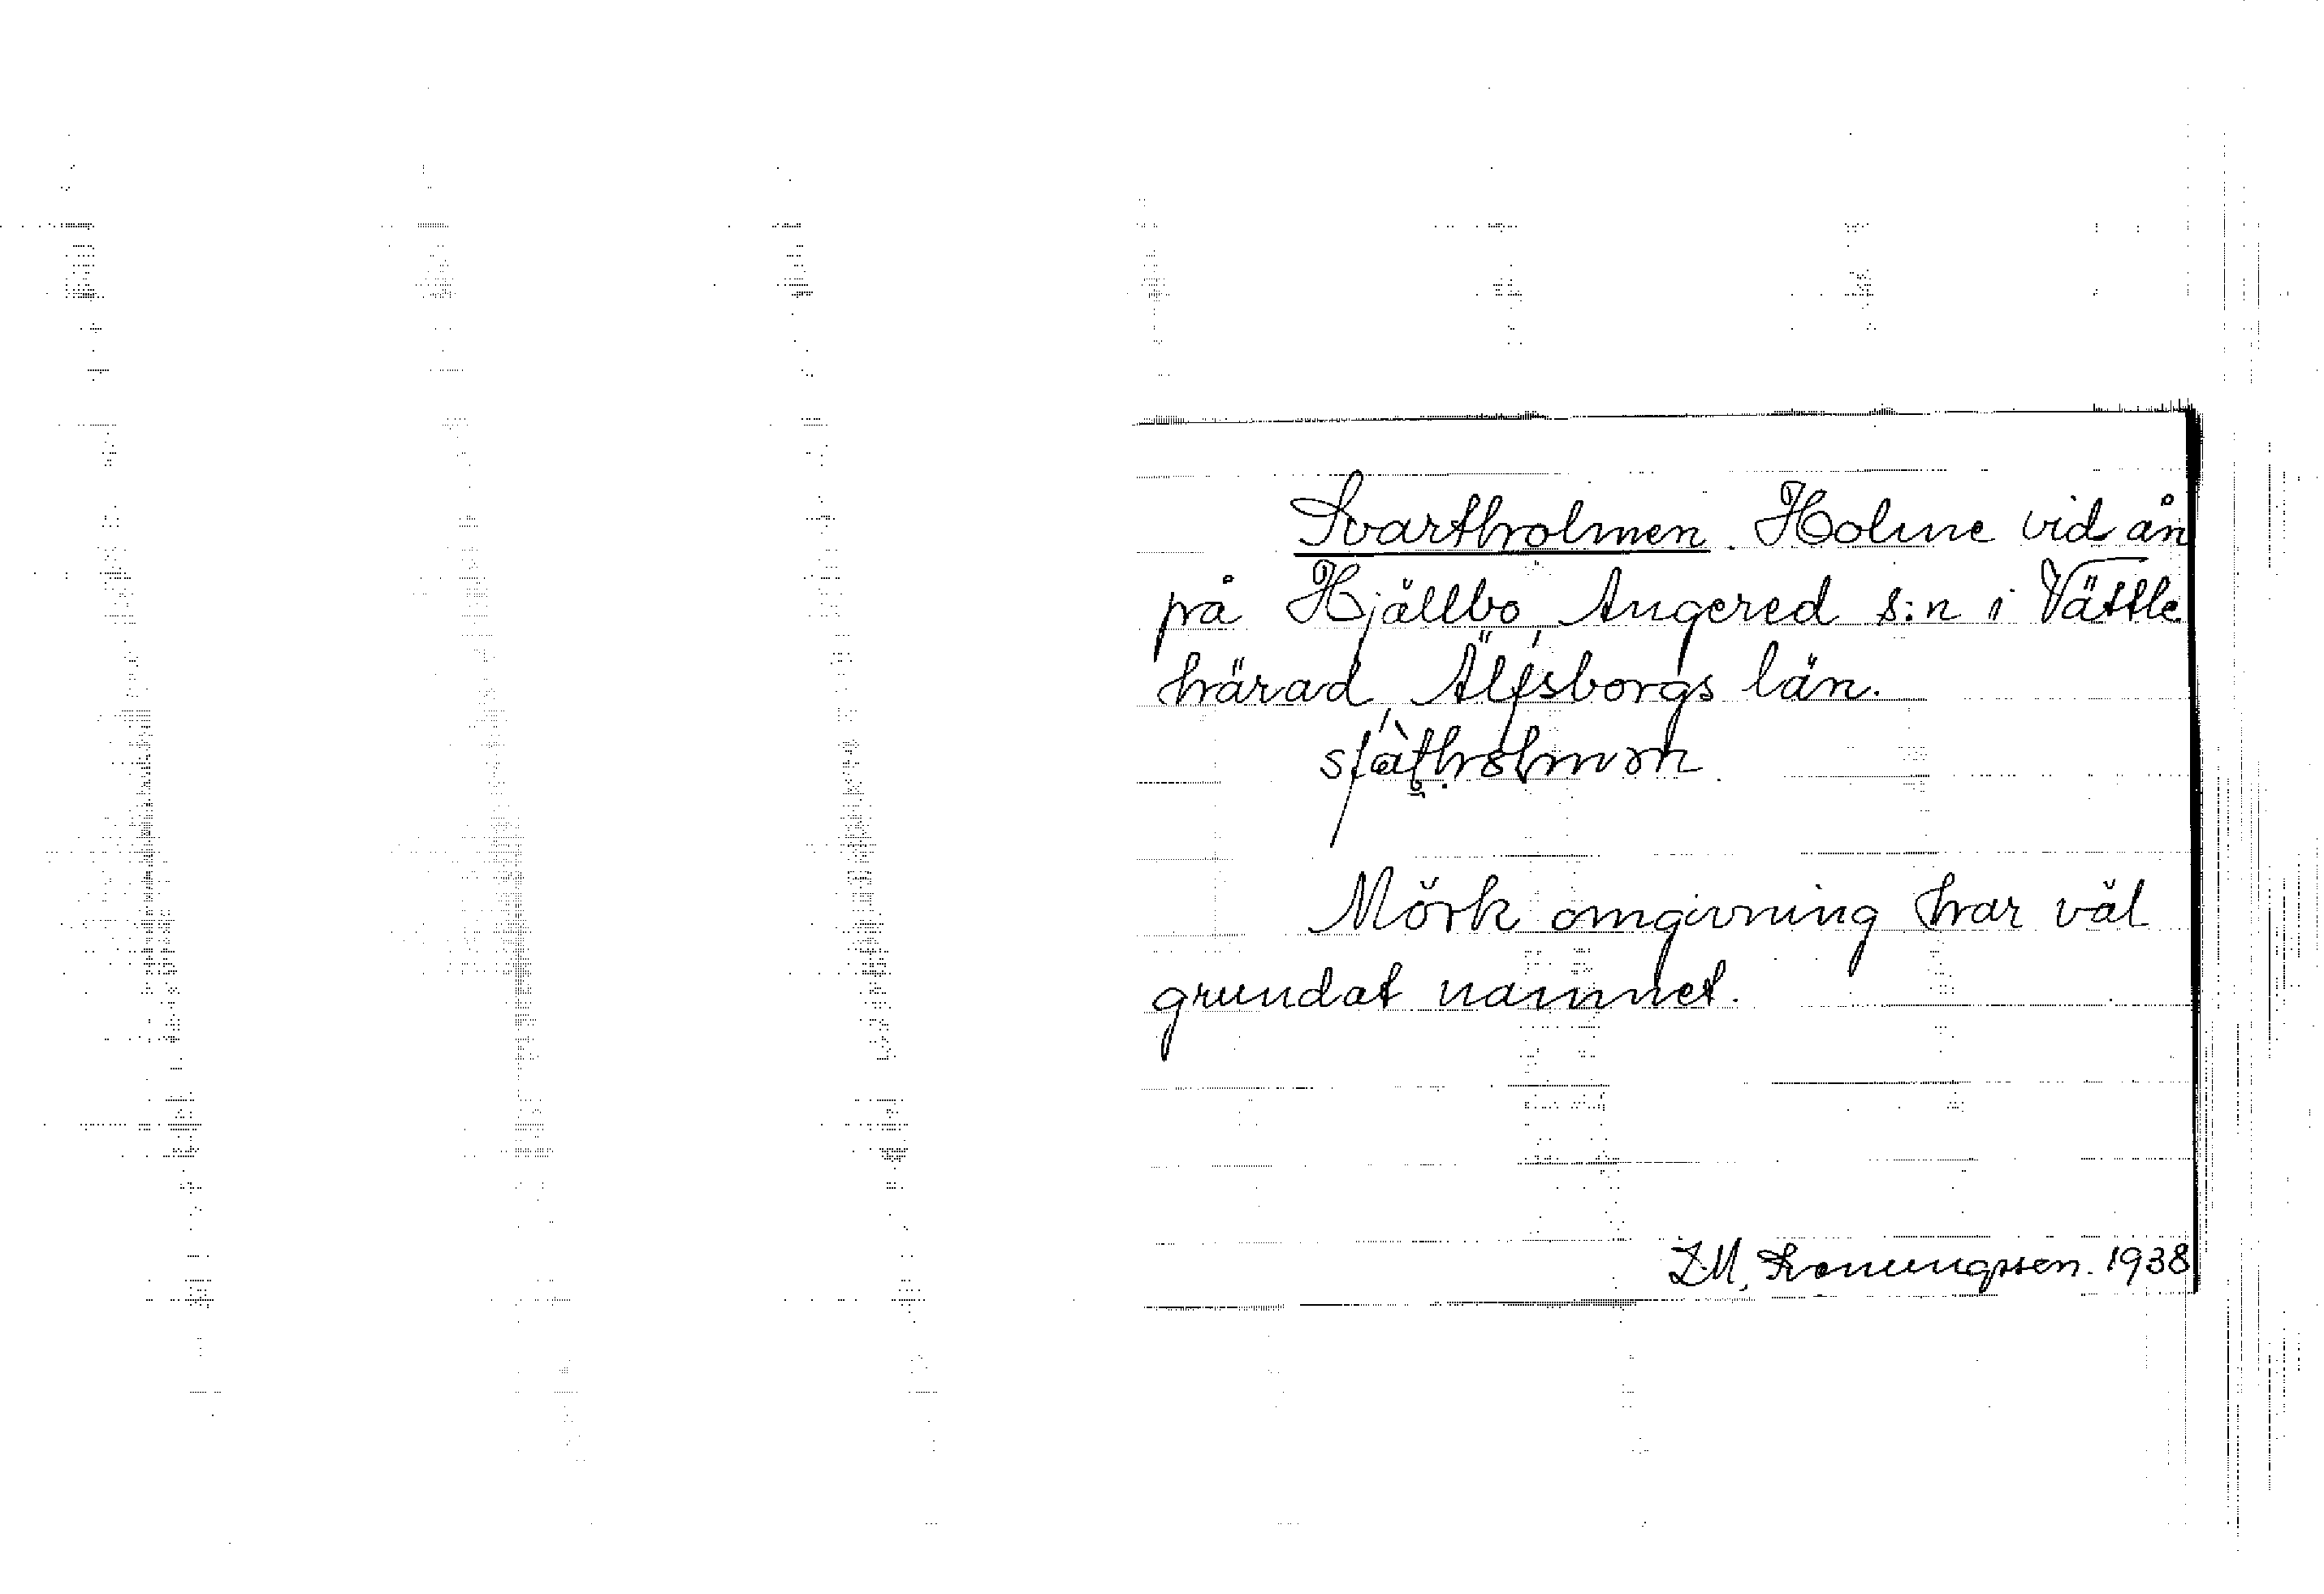 Svartholmen. Holme vid ån
på Hjällbo, Angered s:n i Vättle
härad, Älfsborgs län.
Mörk omgivning har väl
grundat namnet.
1938